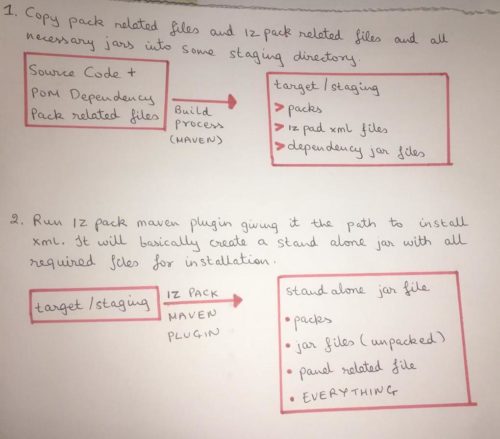 1. Copy pack related files and iz pack related files and all
necessary jars into some staging directory.
Source Code +
POM Dependency
Pack related files
BUILD
PROCESS
(MAVEN)
target/staging
> packs
> iz pad xml files
> dependency jar files
2. Run IZ pack maven plugin giving it the path to install
xml. It will basically create a stand alone jar with all
required files for installation.
target/staging
IZ PACK
MAVEN
PLUGIN
stand alone jar file
• packs
• jar files (unpacked)
• panel related file
• EVERYTHING